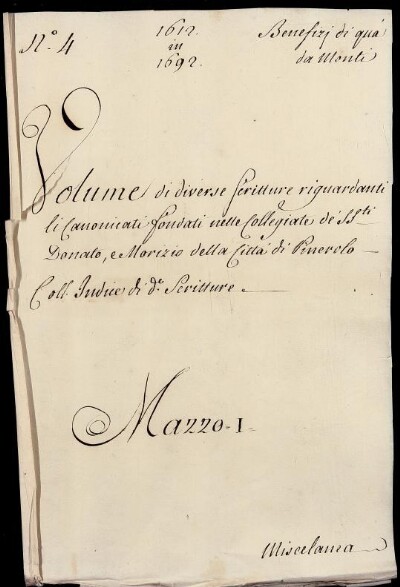 N.º 4
1612.
in
1692.
Benefizj di quà
da Monti
Volume di diverse Scritture riguardanti
li Canonicati fondati nelle Collegiate de' SS.ti
Donato, e Morizio della Città di Pinerolo
Coll' Indice di d.e Scritture.
Mazzo. I.
Miscelanea